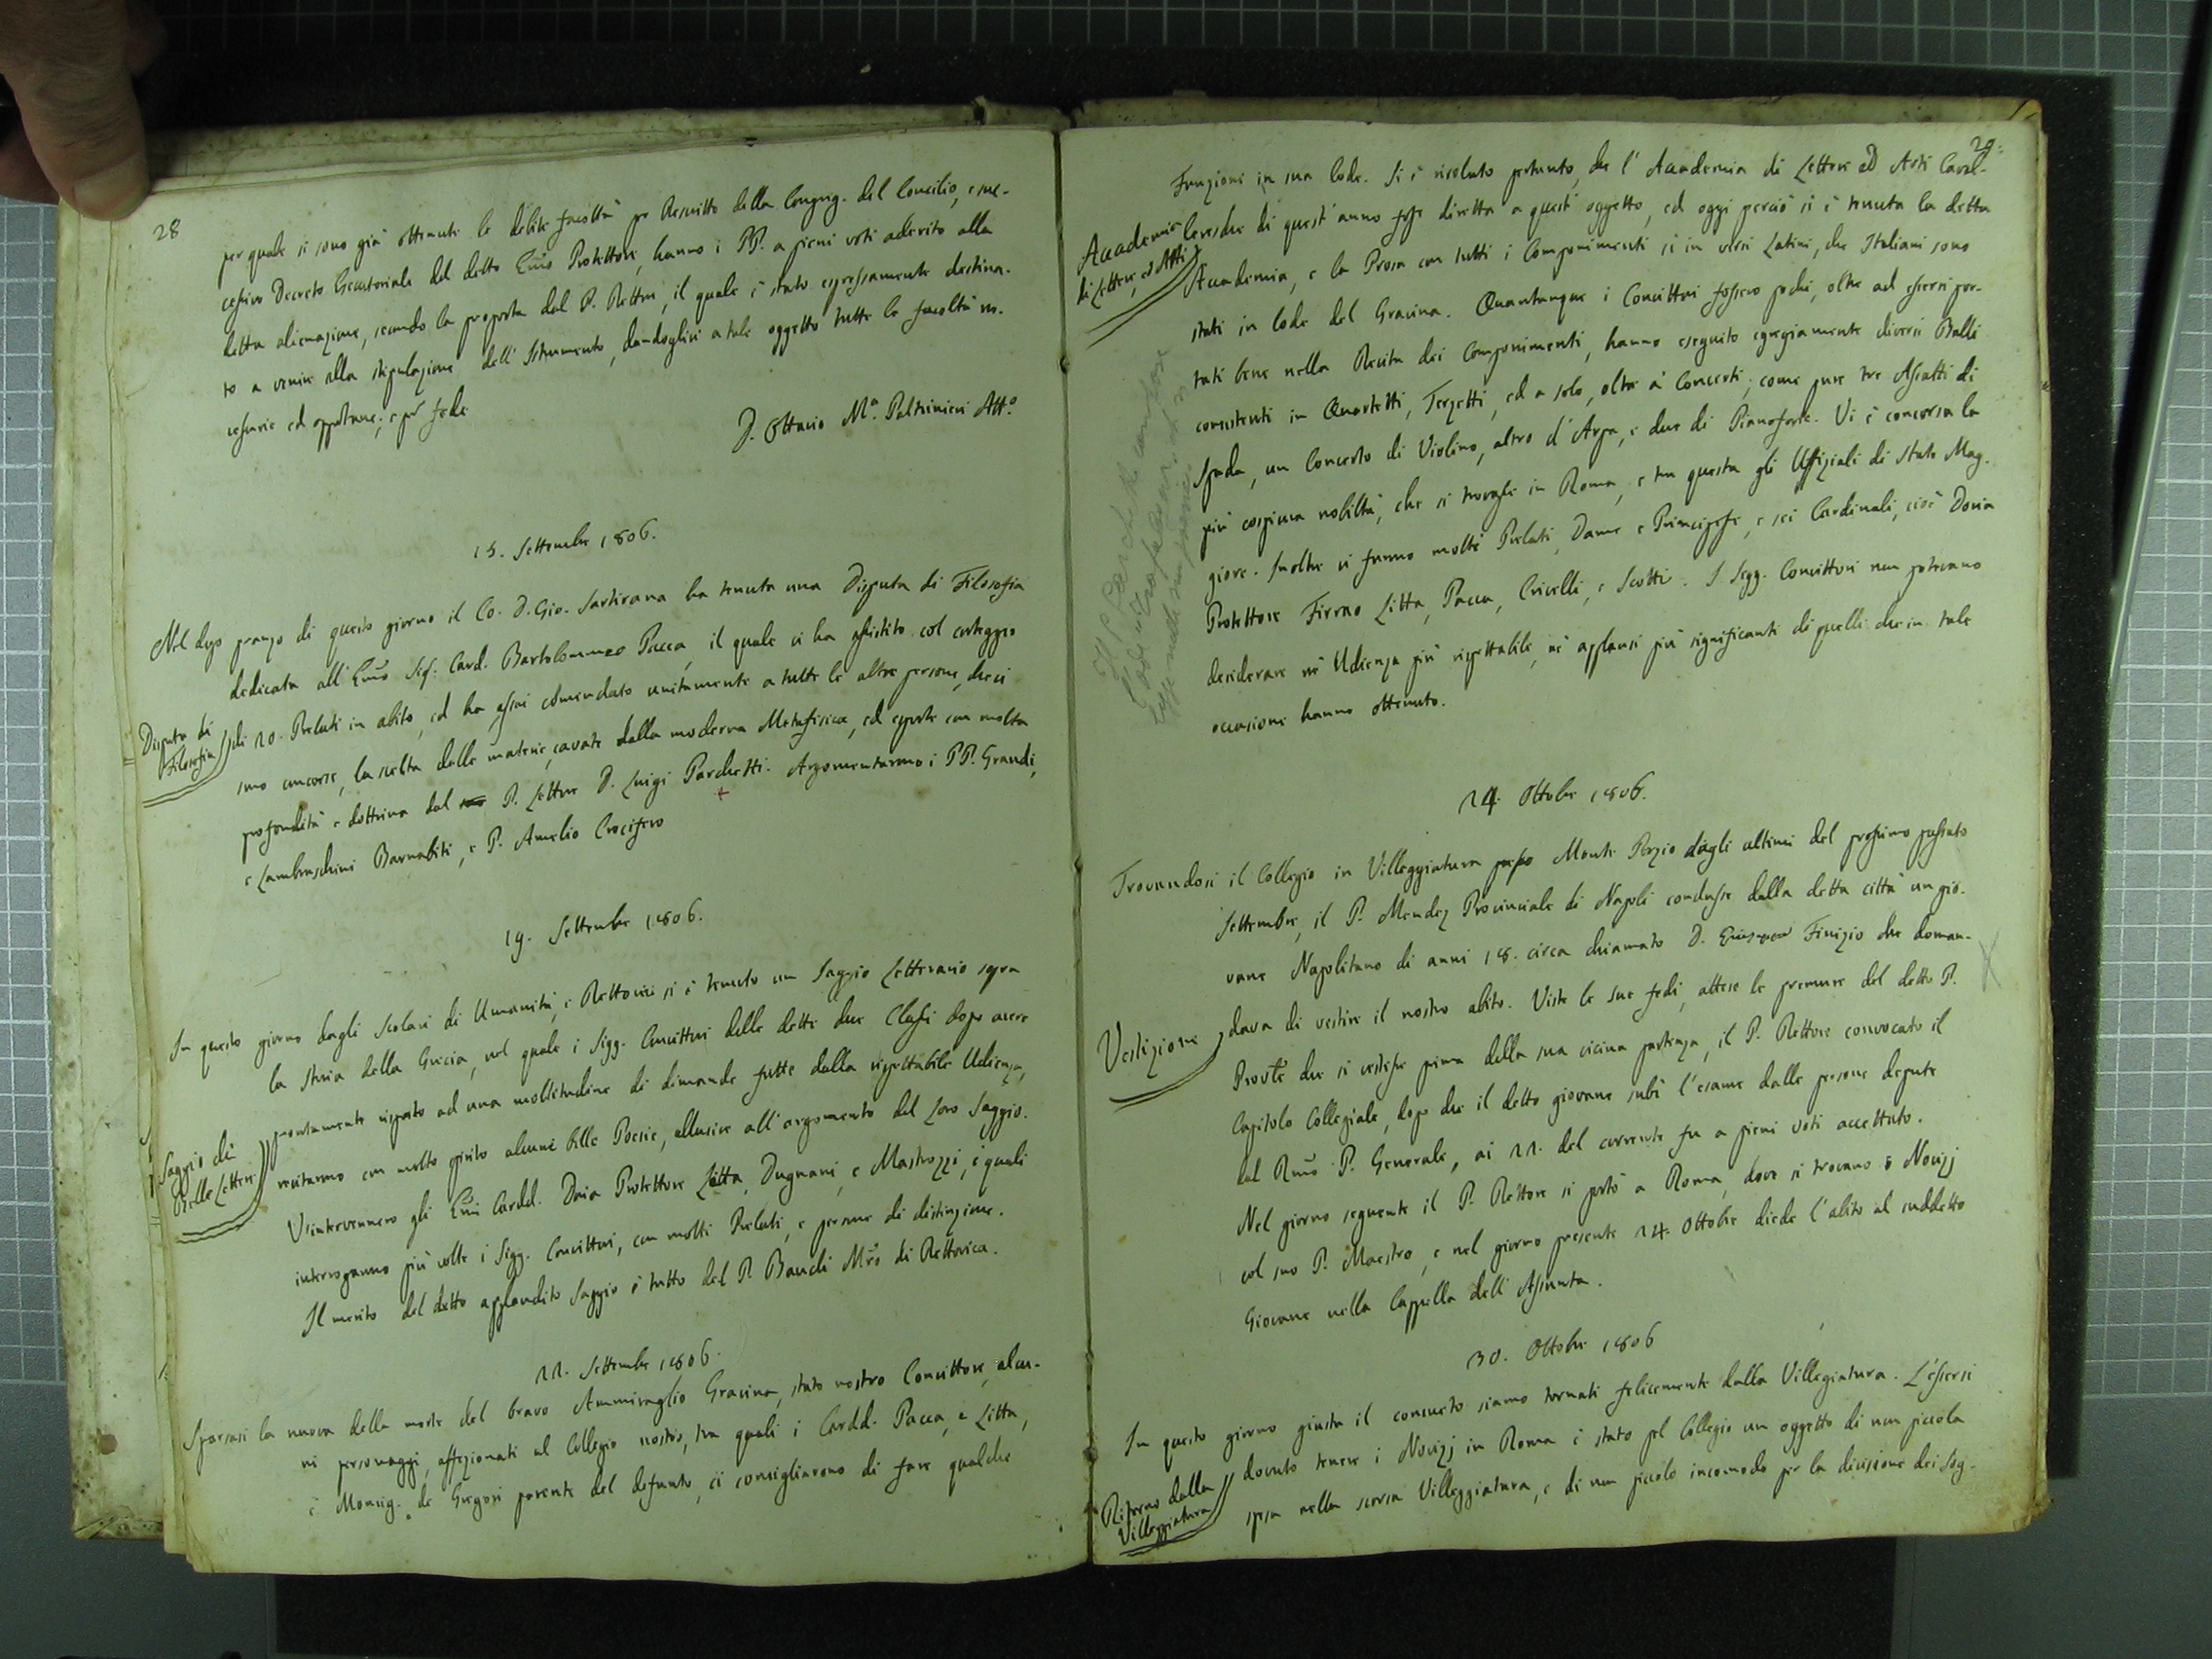 28
per quale si sono già ottenute le debite facoltà per Rescritto della Congreg. del Concilio, e suc-
cessivo Decreto Esecutoriale del detto Emo Protettore, hanno i PP. a pieni voti aderito alla
detta alienazione, secondo la proposta del P. Rettore, il quale è stato espressamente destina-
to a venire alla stipulazione dell'Istrumento, dandoglisi a tale oggetto tutte le facoltà ne-
cessarie ed opportune; e per fede
D. Ottavio Mª. Paltrinieri Att.º
15. Settembre 1806.
Nel dopo pranzo di questo giorno il Co. D. Gio. Sartirana ha tenuta una Disputa di Filosofia
dedicata all'Emo Sig. Card. Bartolommeo Pacca, il quale vi ha assistito col corteggio
Disputa di
Filosofia
di 20. Prelati in abito, ed ha assai comendato unitamente a tutte le altre persone, che vi
sono concorse, la scelta delle materie, cavate dalla moderna Metafisica, ed esposte con molta
profondità e dottrina dal P. Lettore D. Luigi Parchetti. Argomentarono i PP. Grandi,
e Lambruschini Barnabiti, e P. Amelio Crocifero
19. Settembre 1806.
In questo giorno dagli Scolari di Umanità, e Rettorica si è tenuto un Saggio Letterario sopra
la Storia della Grecia, nel quale i Sigg. Convittori delle dette due Classi dopo avere
prontamente risposto ad una moltitudine di dimande fatte dalla rispettabile Udienza,
Saggio di
Belle Lettere
recitarono con molto spirito alcune belle Poesie, allusive all'argomento del loro Saggio.
V'intervennero gli Emi Cardd. Doria Protettore Litta, Dugnani, e Mastrozzi, i quali
interrogarono più volte i Sigg. Convittori, con molti Prelati, e persone di distinzione.
Il merito del detto applaudito Saggio è tutto del P. Bandi Mro di Rettorica.
22. Settembre 1806.
Sparsasi la nuova della morte del bravo Ammiraglio Gravina, stato nostro Convittore, alcu-
ni personaggi, affezionati al Collegio nostro, tra quali i Cardd. Pacca, e Litta,
e Monsig. de Gregori parente del defunto, ci consigliarono di fare qualche
29.
Funzione in sua lode. Si è risoluto pertanto, che l'Accademia di Lettere ed Arti Caval-
Accademia
di Lettere, ed Arti
leresche di quest'anno fosse diretta a quest'oggetto, ed oggi perciò si è tenuta la detta
Accademia, e la Prosa con tutti i Componimenti sì in versi Latini, che Italiani sono
stati in lode del Gravina. Quantunque i Convittori fossero pochi, oltre ad essersi por-
tati bene nella Recita dei Componimenti, hanno eseguito egregiamente diversi Balli
consistenti in Quartetti, Terzetti, ed a solo, oltre ai Concerti; come pure tre Assalti di
Spada, un Concerto di Violino, altro d'Arpa, e due di Pianoforte. Vi è concorsa la
più cospicua nobiltà, che si trovasse in Roma, e tra questa gli Uffiziali di Stato Mag-
giore. Inoltre vi furono molti Prelati, Dame e Principesse, e sei Cardinali, cioè Doria
Protettore Firrao Litta, Pacca, Crivelli, e Scotti. I Sigg. Convittori non potevano
desiderare nè Udienza più rispettabile, nè applausi più significanti di quelli che in tale
occasione hanno ottenuto.
Il P. Parchetti
24. Ottobre 1806.
Trovandosi il Collegio in Villeggiatura presso Monte Porzio dagli ultimi del prossimo passato
Settembre, il P. Mendez Provinciale di Napoli condusse dalla detta città un gio-
vane Napolitano di anni 18. circa chiamato D. Finizio che doman-
Vestizione
dava di vestire il nostro abito. Viste le sue fedi, attese le premure del detto P.
Provle che si vestisse prima della sua vicina partenza, il P. Rettore convocato il
Capitolo Collegiale, dopo che il detto giovane subì l'esame dalle persone depute
dal Rmo P. Generale, ai 22. del corrente fu a pieni voti accettato.
Nel giorno seguente il P. Rettore si portò a Roma, dove si trovano i Novizj
col suo P. Maestro, e nel giorno presente 24. Ottobre diede l'abito al suddetto
Giovane nella Cappella dell'Assunta.
30. Ottobre 1806
In questo giorno giusta il consueto siamo tornati felicemente dalla Villegiatura. L'essersi
Ritorno dalla
Villeggiatura
dovuto tenere i Novizj in Roma è stato pel Collegio un oggetto di non piccola
spesa nella scorsa Villeggiatura, e di non piccolo incomodo per la divisione dei Sog-